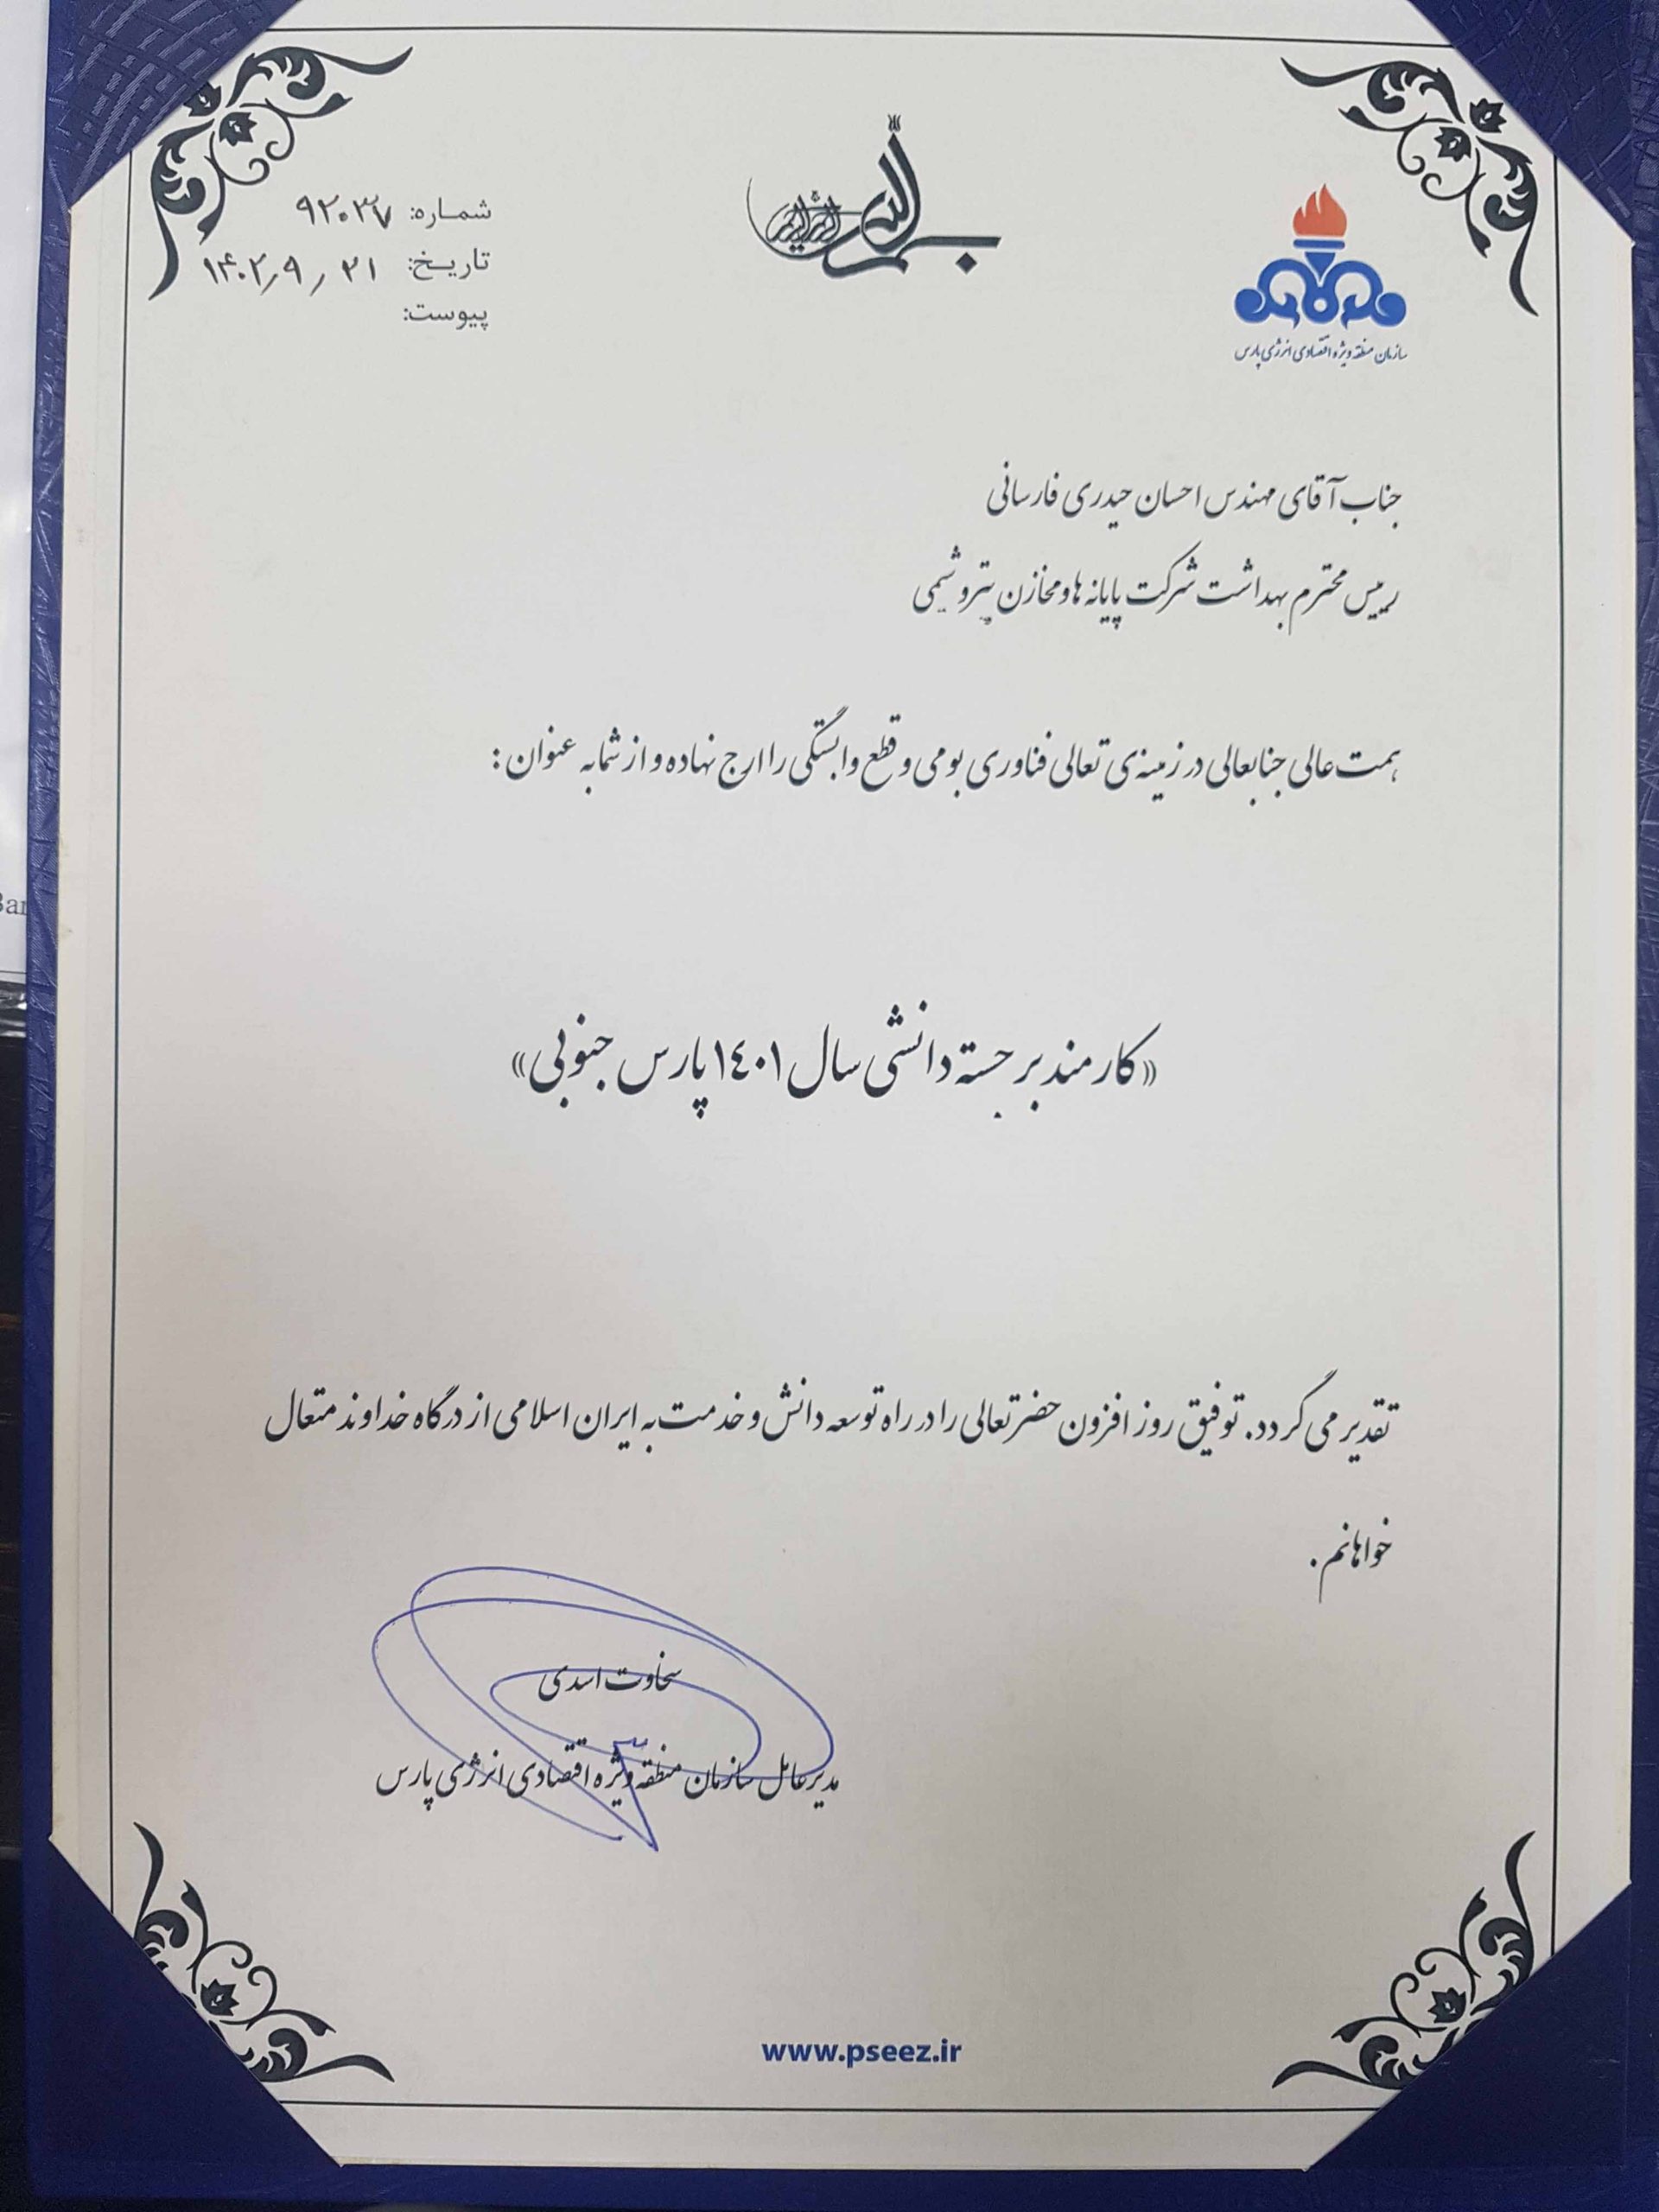 بسم الله الرحمن الرحیم
شماره: ۹۲۰۳۷
تاریخ: ۱۴۰۲/۹/۲۱
پیوست:
سازمان منطقه ویژه اقتصادی انرژی پارس
جناب آقای مهندس احسان حیدری فارسانی
رییس محترم بهداشت شرکت پایانه ها و مخازن پتروشیمی
همت عالی جنابعالی در زمینه ی تعالی فناوری بومی و قطع وابستگی را ارج نهاده و از شما به عنوان :
«کارمند برجسته دانشی سال ۱۴۰۱ پارس جنوبی»
تقدیر می گردد. توفیق روز افزون حضرتعالی را در راه توسعه دانش و خدمت به ایران اسلامی از درگاه خداوند متعال
خواهانم .
سخاوت اسدی
مدیرعامل سازمان منطقه ویژه اقتصادی انرژی پارس
www.pseez.ir